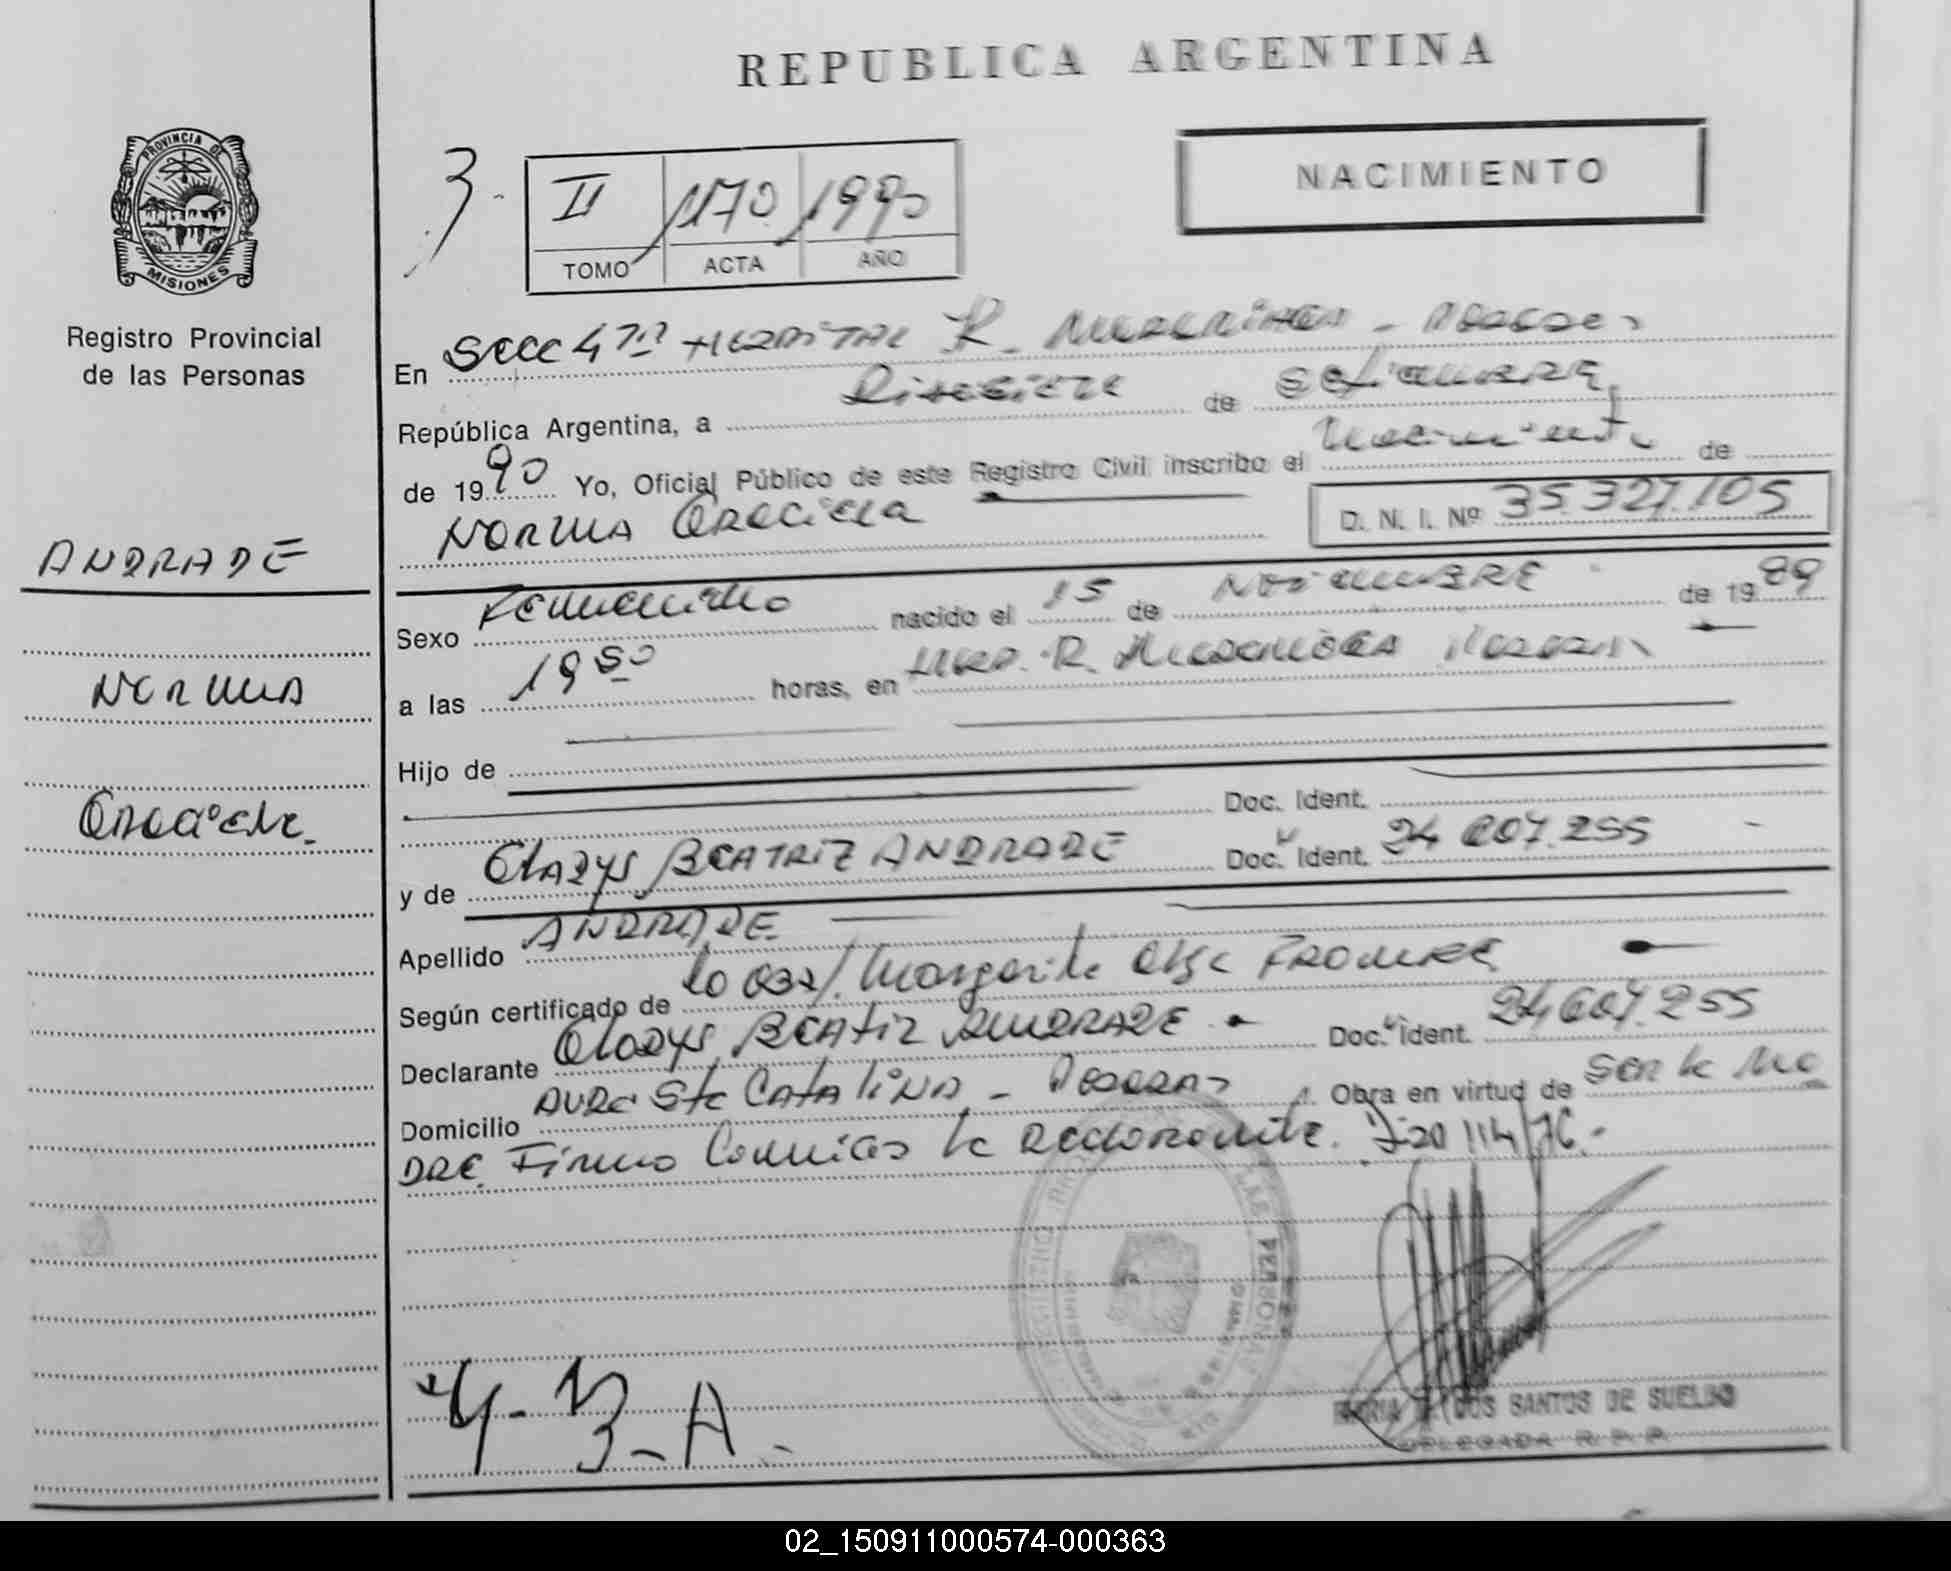 REPUBLICA ARGENTINA
PROVINCIA DE
MISIONES
Registro Provincial
de las Personas
3-
II 1170 1990
TOMO ACTA AÑO
NACIMIENTO
En Secc 4ta Hospital R. Madariaga - Posadas
República Argentina, a Diecisiete de Setiembre
de 1990 Yo, Oficial Público de este Registro Civil inscribo el Nacimiento de
Norma Graciela
D. N. I. Nº 35.327.105
ANDRADE
Norma
Graciela.
Sexo Femenino nacido el 15 de Noviembre de 1989
a las 19 50 horas, en Hosp. R. Madariaga Posadas
Hijo de
Doc. Ident.
y de Gladys Beatriz ANDRADE Doc. Ident. 24 607.255
Apellido ANDRADE
Según certificado de la Obst. Margarita Olga
Declarante Gladys Beatriz ANDRADE Doc. Ident. 24 607.255
Domicilio Sta Catalina - Posadas Obra en virtud de Ser la Ma
dre. Firma Conmigo la declarante.
REGISTRO LAS PERSONAS
MARIA DOS SANTOS DE SUELDO
DELEGADA R. P. P.
4-B-A.
02_150911000574-000363